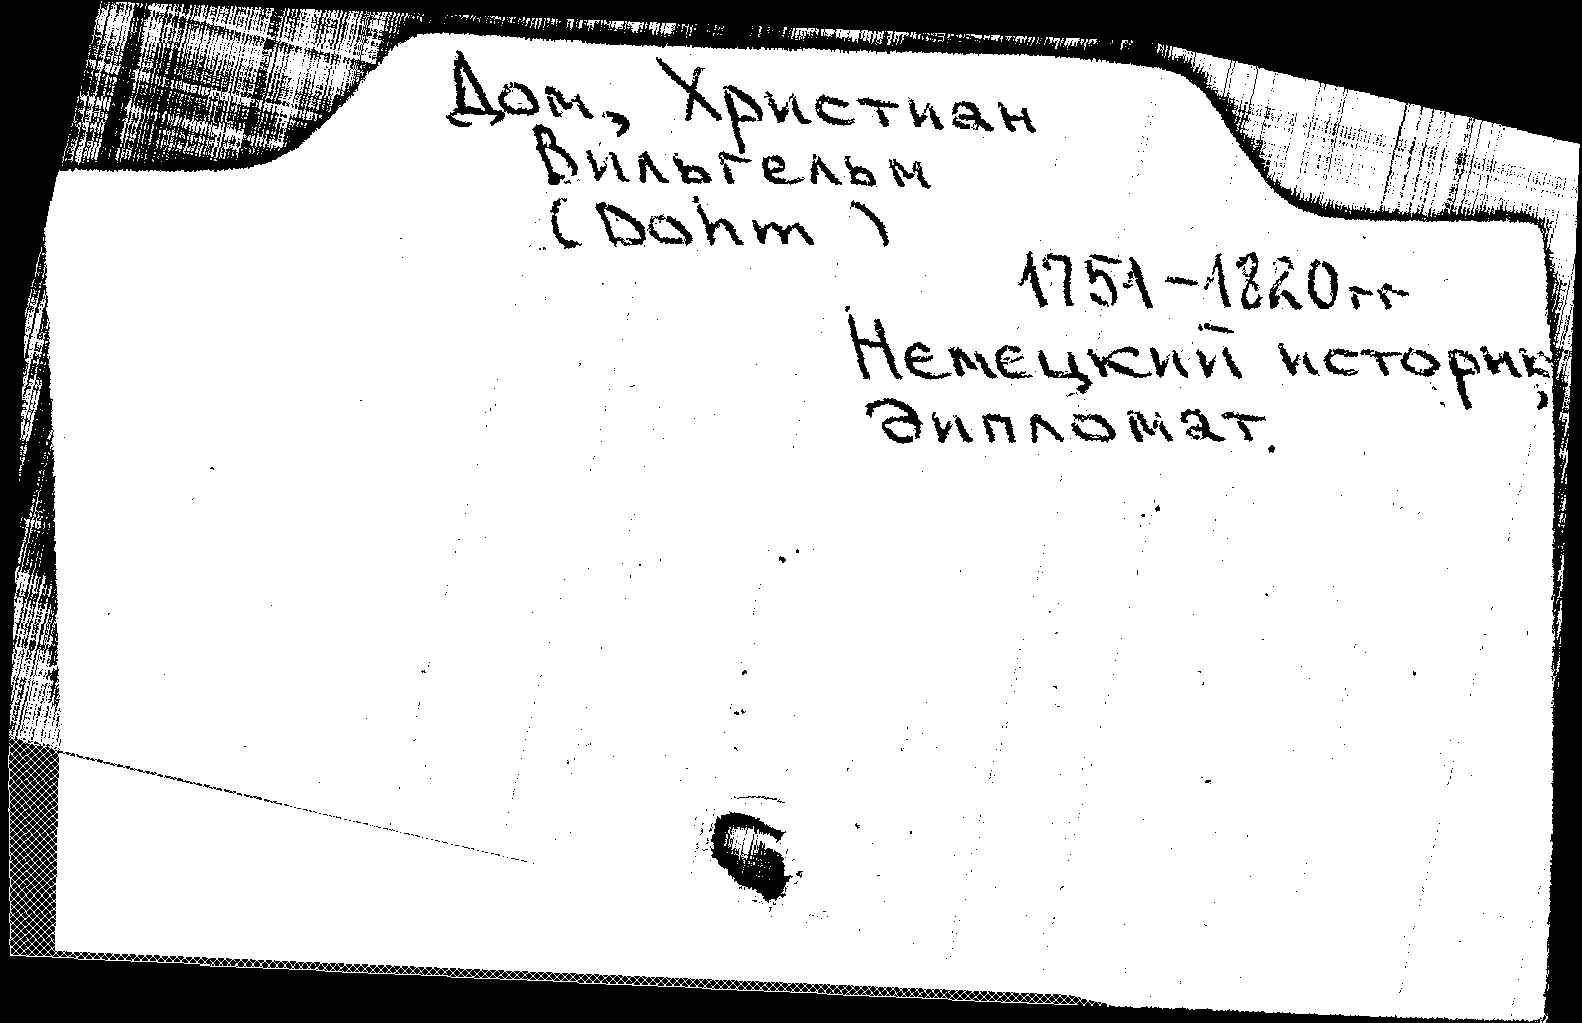 Дом, Христиан
Вильгельм
(Dohm)
1751-1820гг
Немецкий историк,
дипломат.